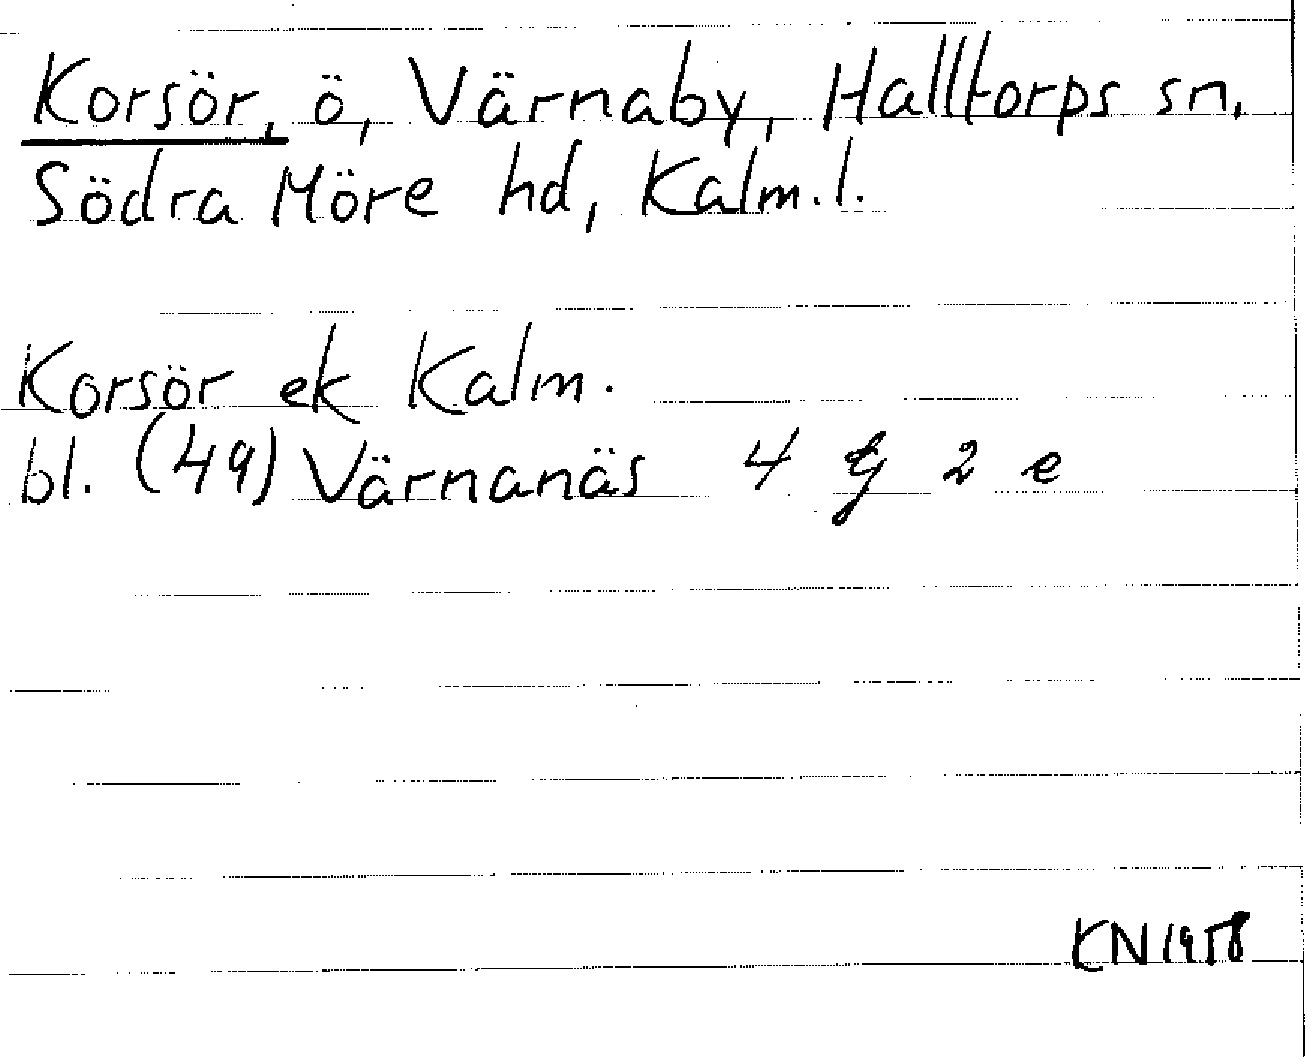 Korsör, ö, Värnaby, Halltorps sn,
Södra Möre hd, Kalm.l.
Korsör ek Kalm.
bl. (49) Värnanäs 4 G 2 e
KN 1958